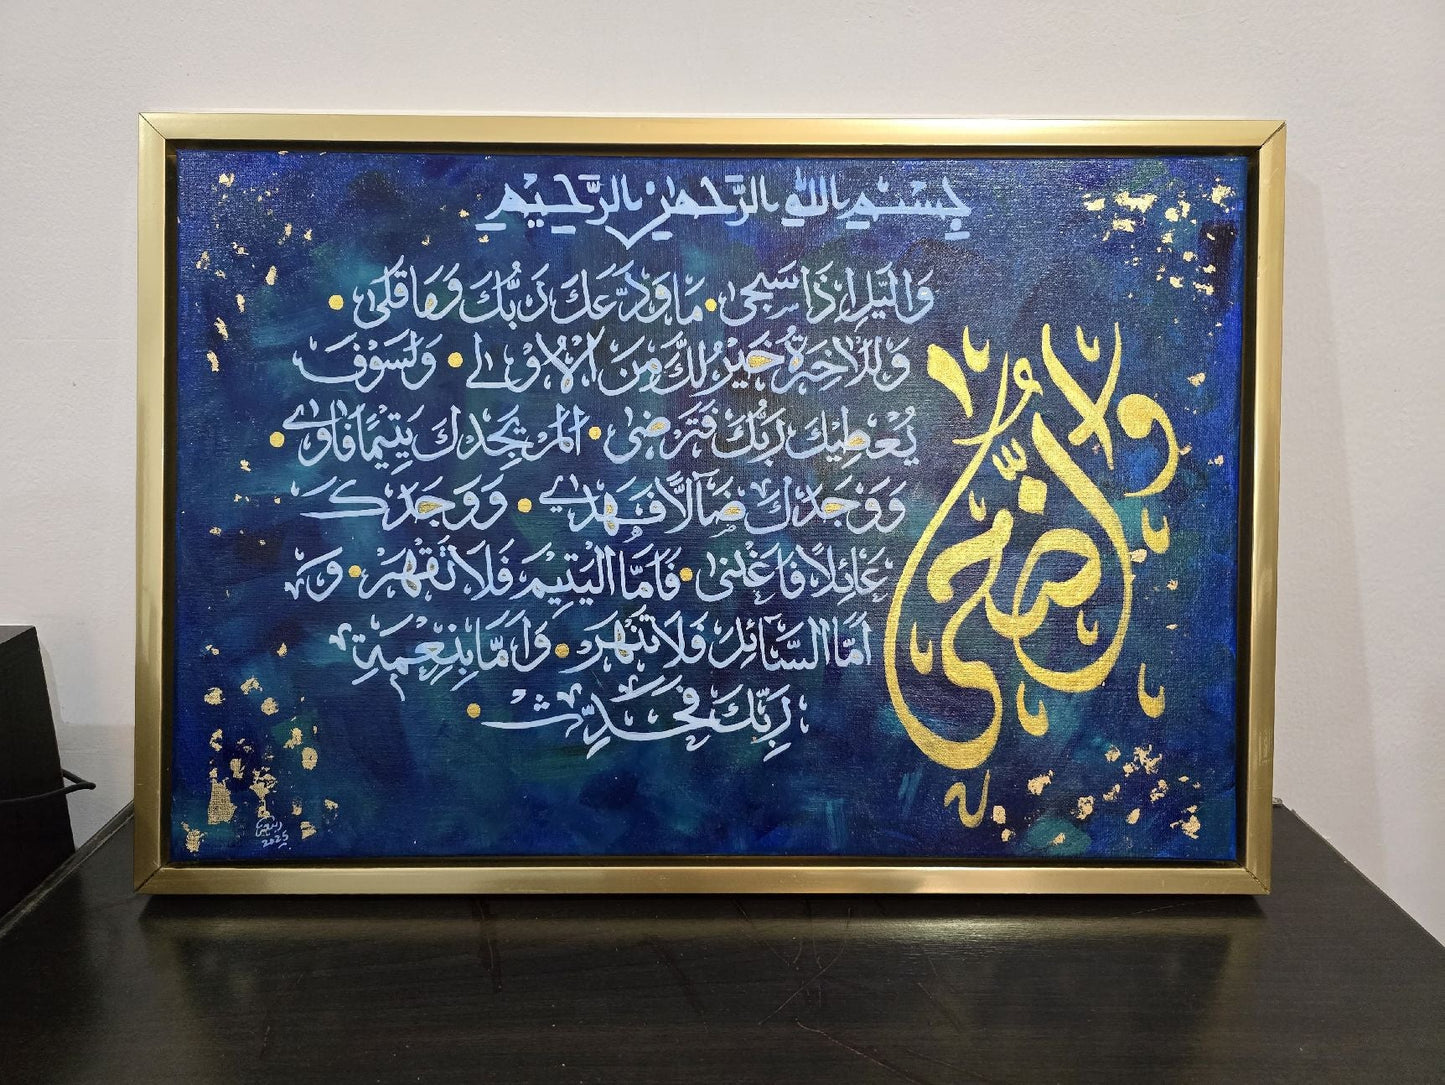 بِسْمِ اللهِ الرَّحْمٰنِ الرَّحِيْمِ
وَالضُّحٰى
وَالَّيْلِ اِذَا سَجٰى • مَا وَدَّعَكَ رَبُّكَ وَمَا قَلٰى •
وَلَلْاٰخِرَةُ خَيْرٌ لَّكَ مِنَ الْاُوْلٰى • وَلَسَوْفَ
يُعْطِيْكَ رَبُّكَ فَتَرْضٰى • اَلَمْ يَجِدْكَ يَتِيْمًا فَاٰوٰى •
وَوَجَدَكَ ضَآلًّا فَهَدٰى • وَوَجَدَكَ
عَائِلًا فَاَغْنٰى • فَاَمَّا الْيَتِيْمَ فَلَا تَقْهَرْ • وَ
اَمَّا السَّائِلَ فَلَا تَنْهَرْ • وَاَمَّا بِنِعْمَةِ
رَبِّكَ فَحَدِّثْ •
2025